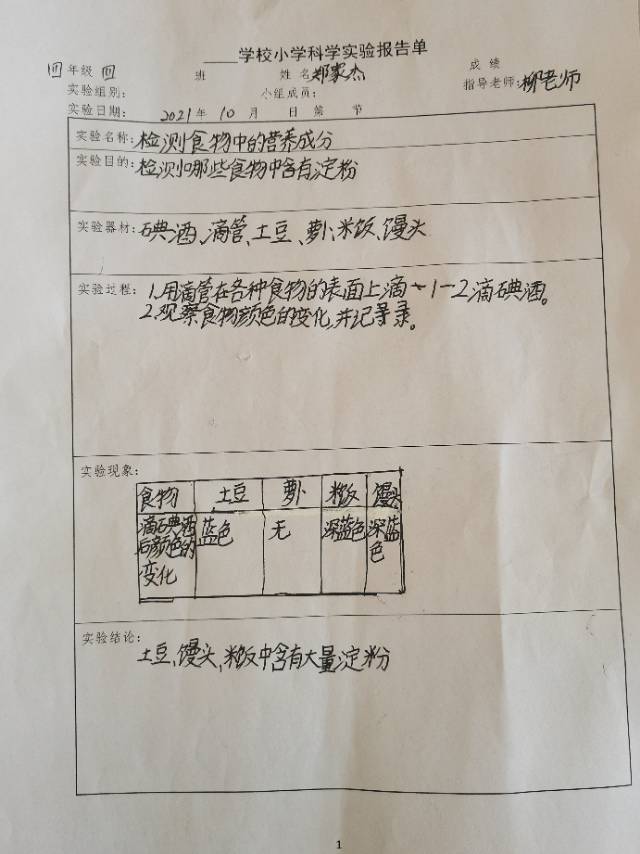 ____学校小学科学实验报告单
四年级 四 班 姓名 郑家杰 成绩
实验组别: 小组成员: 指导老师: 柳老师
实验日期: 2021年 10月 日 第 节
实验名称: 检测食物中的营养成分
实验目的: 检测哪些食物中含有淀粉
实验器材: 碘酒、滴管、土豆、萝卜、米饭、馒头
实验过程: 1.用滴管在各种食物的表面上滴一1-2滴碘酒。
2.观察食物颜色的变化,并记录。
实验现象:
食物 土豆 萝卜 米饭 馒头
滴碘酒后颜色的变化 蓝色 无 深蓝色 深蓝色
实验结论:
土豆、馒头、米饭中含有大量淀粉
1